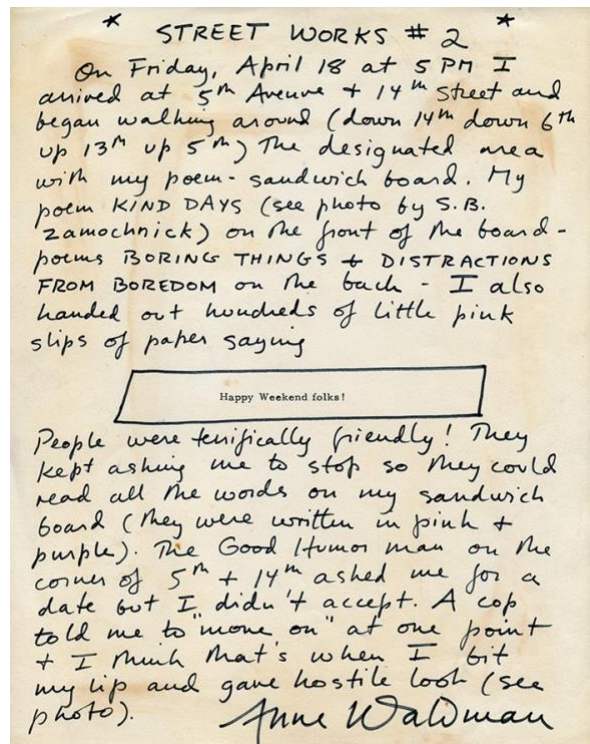 * STREET WORKS # 2 *
On Friday, April 18 at 5 PM I
arrived at 5th Avenue + 14th Street and
began walking around (down 14th down 6th
up 13th up 5th) The designated area
with my poem-sandwich board. My
poem KIND DAYS (see photo by S.B.
Zamochnick) on the front of the board-
poems BORING THINGS + DISTRACTIONS
FROM BOREDOM on the back - I also
handed out hundreds of little pink
slips of paper saying
Happy Weekend folks!
People were terrifically friendly! They
kept asking me to stop so they could
read all the words on my sandwich
board (they were written in pink +
purple). The Good Humor man on the
corner of 5th + 14th asked me for a
date but I didn't accept. A cop
told me to "move on" at one point
+ I think that's when I bit
my lip and gave hostile look (see
photo). Anne Waldman